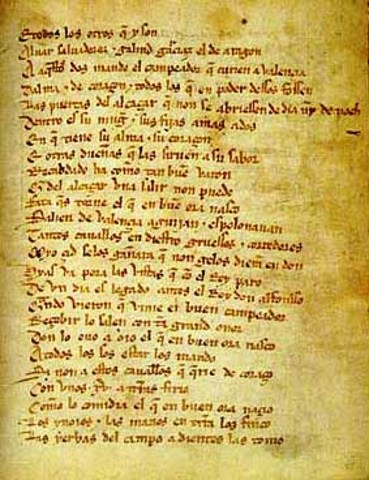 E todos los otros q̃ y son
Aluar saluadorez ⁊ galind garçiaz el de aragon
A aq̃stos dos mando el campeador q̃ curien a valençia
Dalma ⁊ de coraçon ⁊ todos los q̃ en poder dessos fossen
Las puertas del alcaçar q̃ non se abriessen de dia nin de noch
Dentro es su mugẽ ⁊ sus fijas amas ados
En q̃ tiene su alma ⁊ su coraçon
E otras dueñas q̃ las siruen a su sabor
Recabdado ha como tan buẽ varon
Q̃ del alcaçar vna salir non puede
Fata q̃s torne el q̃ en buẽ ora nasco
Salien de valençia aguijan ⁊ espolonauan
Tantos cauallos en diestro gruessos ⁊ corredores
Myo çid selos gañara q̃ non gelos dierã en don
Hyas va pora las vistas q̃ cõ el Rey paro
De vn dia es legado antes el Rey don alfonsso
Q̃ndo vieron q̃ vinie el buen campeador
Reçebir lo salen con tã grand onor
Don lo ouo a oio el q̃ en buen ora nasco
Atodos los sos estar los mando
Si non a estos cauallos q̃ q̃rie de coraçõ
Con vnos .xv. a tr̃ras firio
Com̃o lo comidia el q̃ en buen ora naçio
Los ynoios ⁊ las manos en tr̃ra los finco
Las yerbas del campo a dientes las tomo